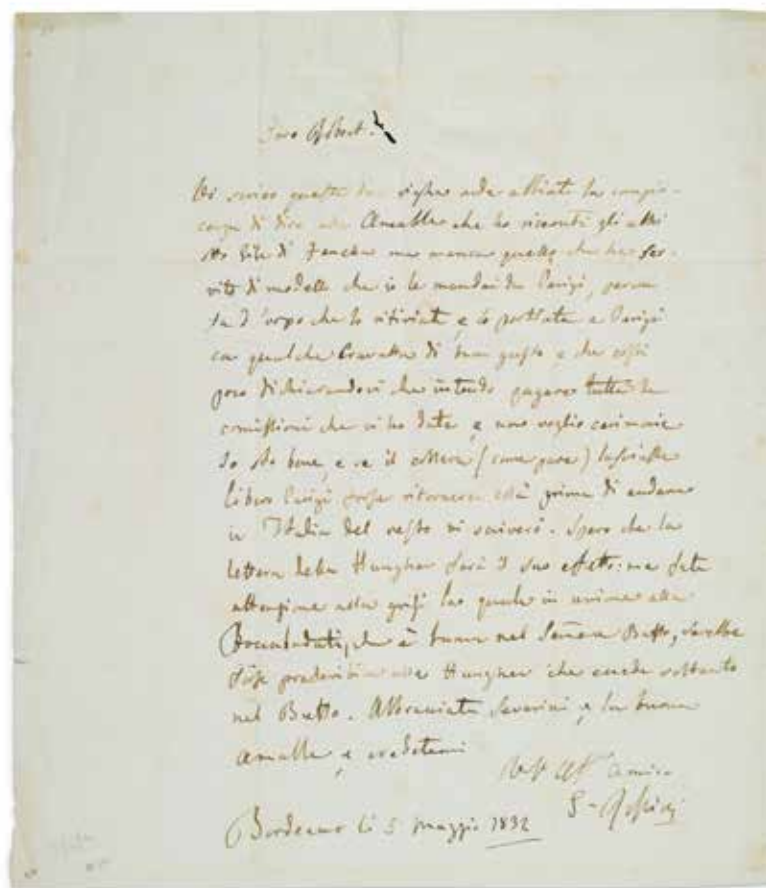 Caro Robert.
Vi scrivo queste due righe onde abbiate la compia-
cenza di dire alla Amalia che ho ricevuti gli abiti
di ma manca quello che ha ser-
vito di modello che io le mandai da Parigi, 
d'uopo che lo ritiriate, e lo portiate a Parigi
con qualche Cravatta di buon gusto, e che costi
poco dichiarandovi che intendo pagare tutte le
comissioni che vi ho date, e non voglio cerimonie
Io sto bene, e se il collera (come pare) lasciasse
libero Parigi forse ritornerei colà prima di andare
in Italia del resto vi scriverò. Spero che la
lettera della Hungher farà il suo effetto: ma fate
attenzione alla Grisi la quale in unione alla
Boccabadati, che è buona nel Serio e Buffo, sarebbe
forse alla Hungher che anche soltanto
nel Buffo. Abbracciate Severini e la buona
Amalia, e credetemi
Vos Aff amico
G. Rossini
Bordeaux li 5 maggio 1832